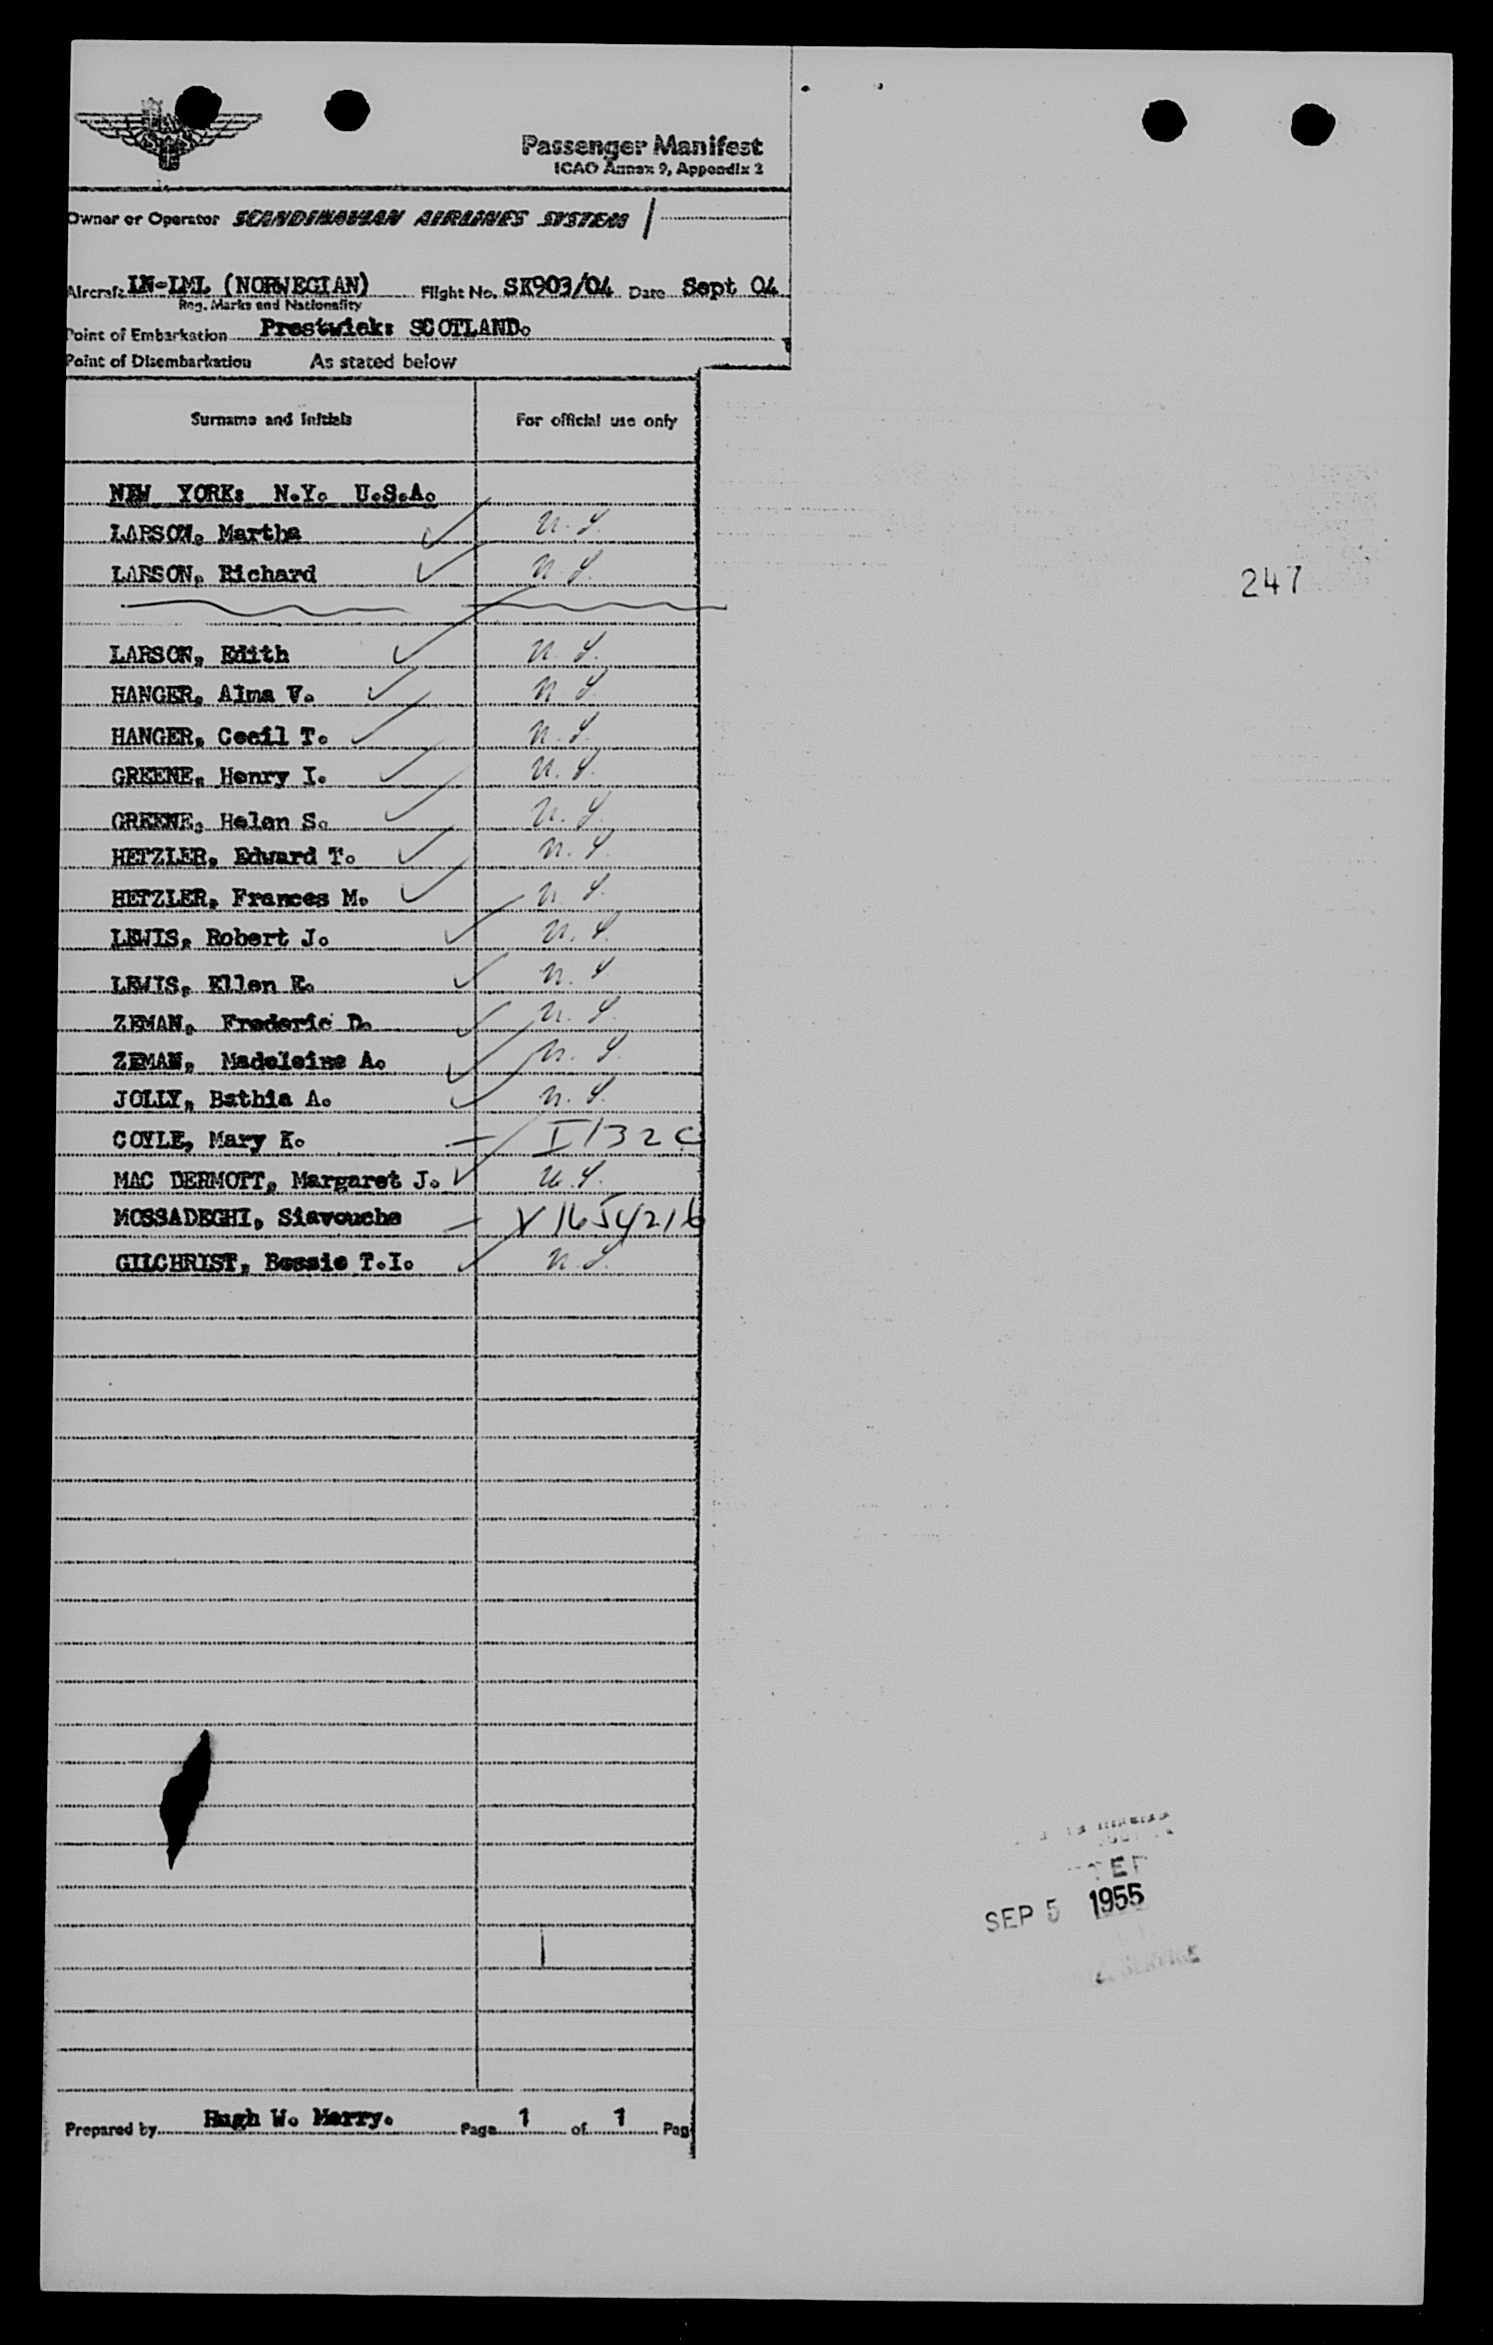 Passenger Manifest
ICAO Annex 9, Appendix 2
Owner or Operator SCANDINAVIAN AIRLINES SYSTEM
Aircraft LN-LML (NORWEGIAN) Flight No. SK903/04 Date Sept 04
Reg. Marks and Nationality
Point of Embarkation Prestwick: SCOTLAND.
Point of Disembarkation As stated below
Surname and Initials For official use only
NEW YORK: N.Y. U.S.A.
LARSON, Martha U.S.
LARSON, Richard U.S.
247
LARSON, Edith U.S.
HANGER, Alma V. U.S.
HANGER, Cecil T. U.S.
GREENE, Henry I. U.S.
GREENE, Helen S. U.S.
HETZLER, Edward T. U.S.
HETZLER, Frances M. U.S.
LEWIS, Robert J. U.S.
LEWIS, Ellen E. U.S.
ZEMAN, Frederic D. U.S.
ZEMAN, Madeleine A. U.S.
JOLLY, Bathia A. U.S.
COYLE, Mary K. — I 132 C
MAC DERMOTT, Margaret J. U.S.
MOSSADEGHI, Siavouche — V 1654216
GILCHRIST, Bessie T.I. U.S.
SEP 5 1955
Prepared by Hugh W. Merry. Page 1 of 1 Pag